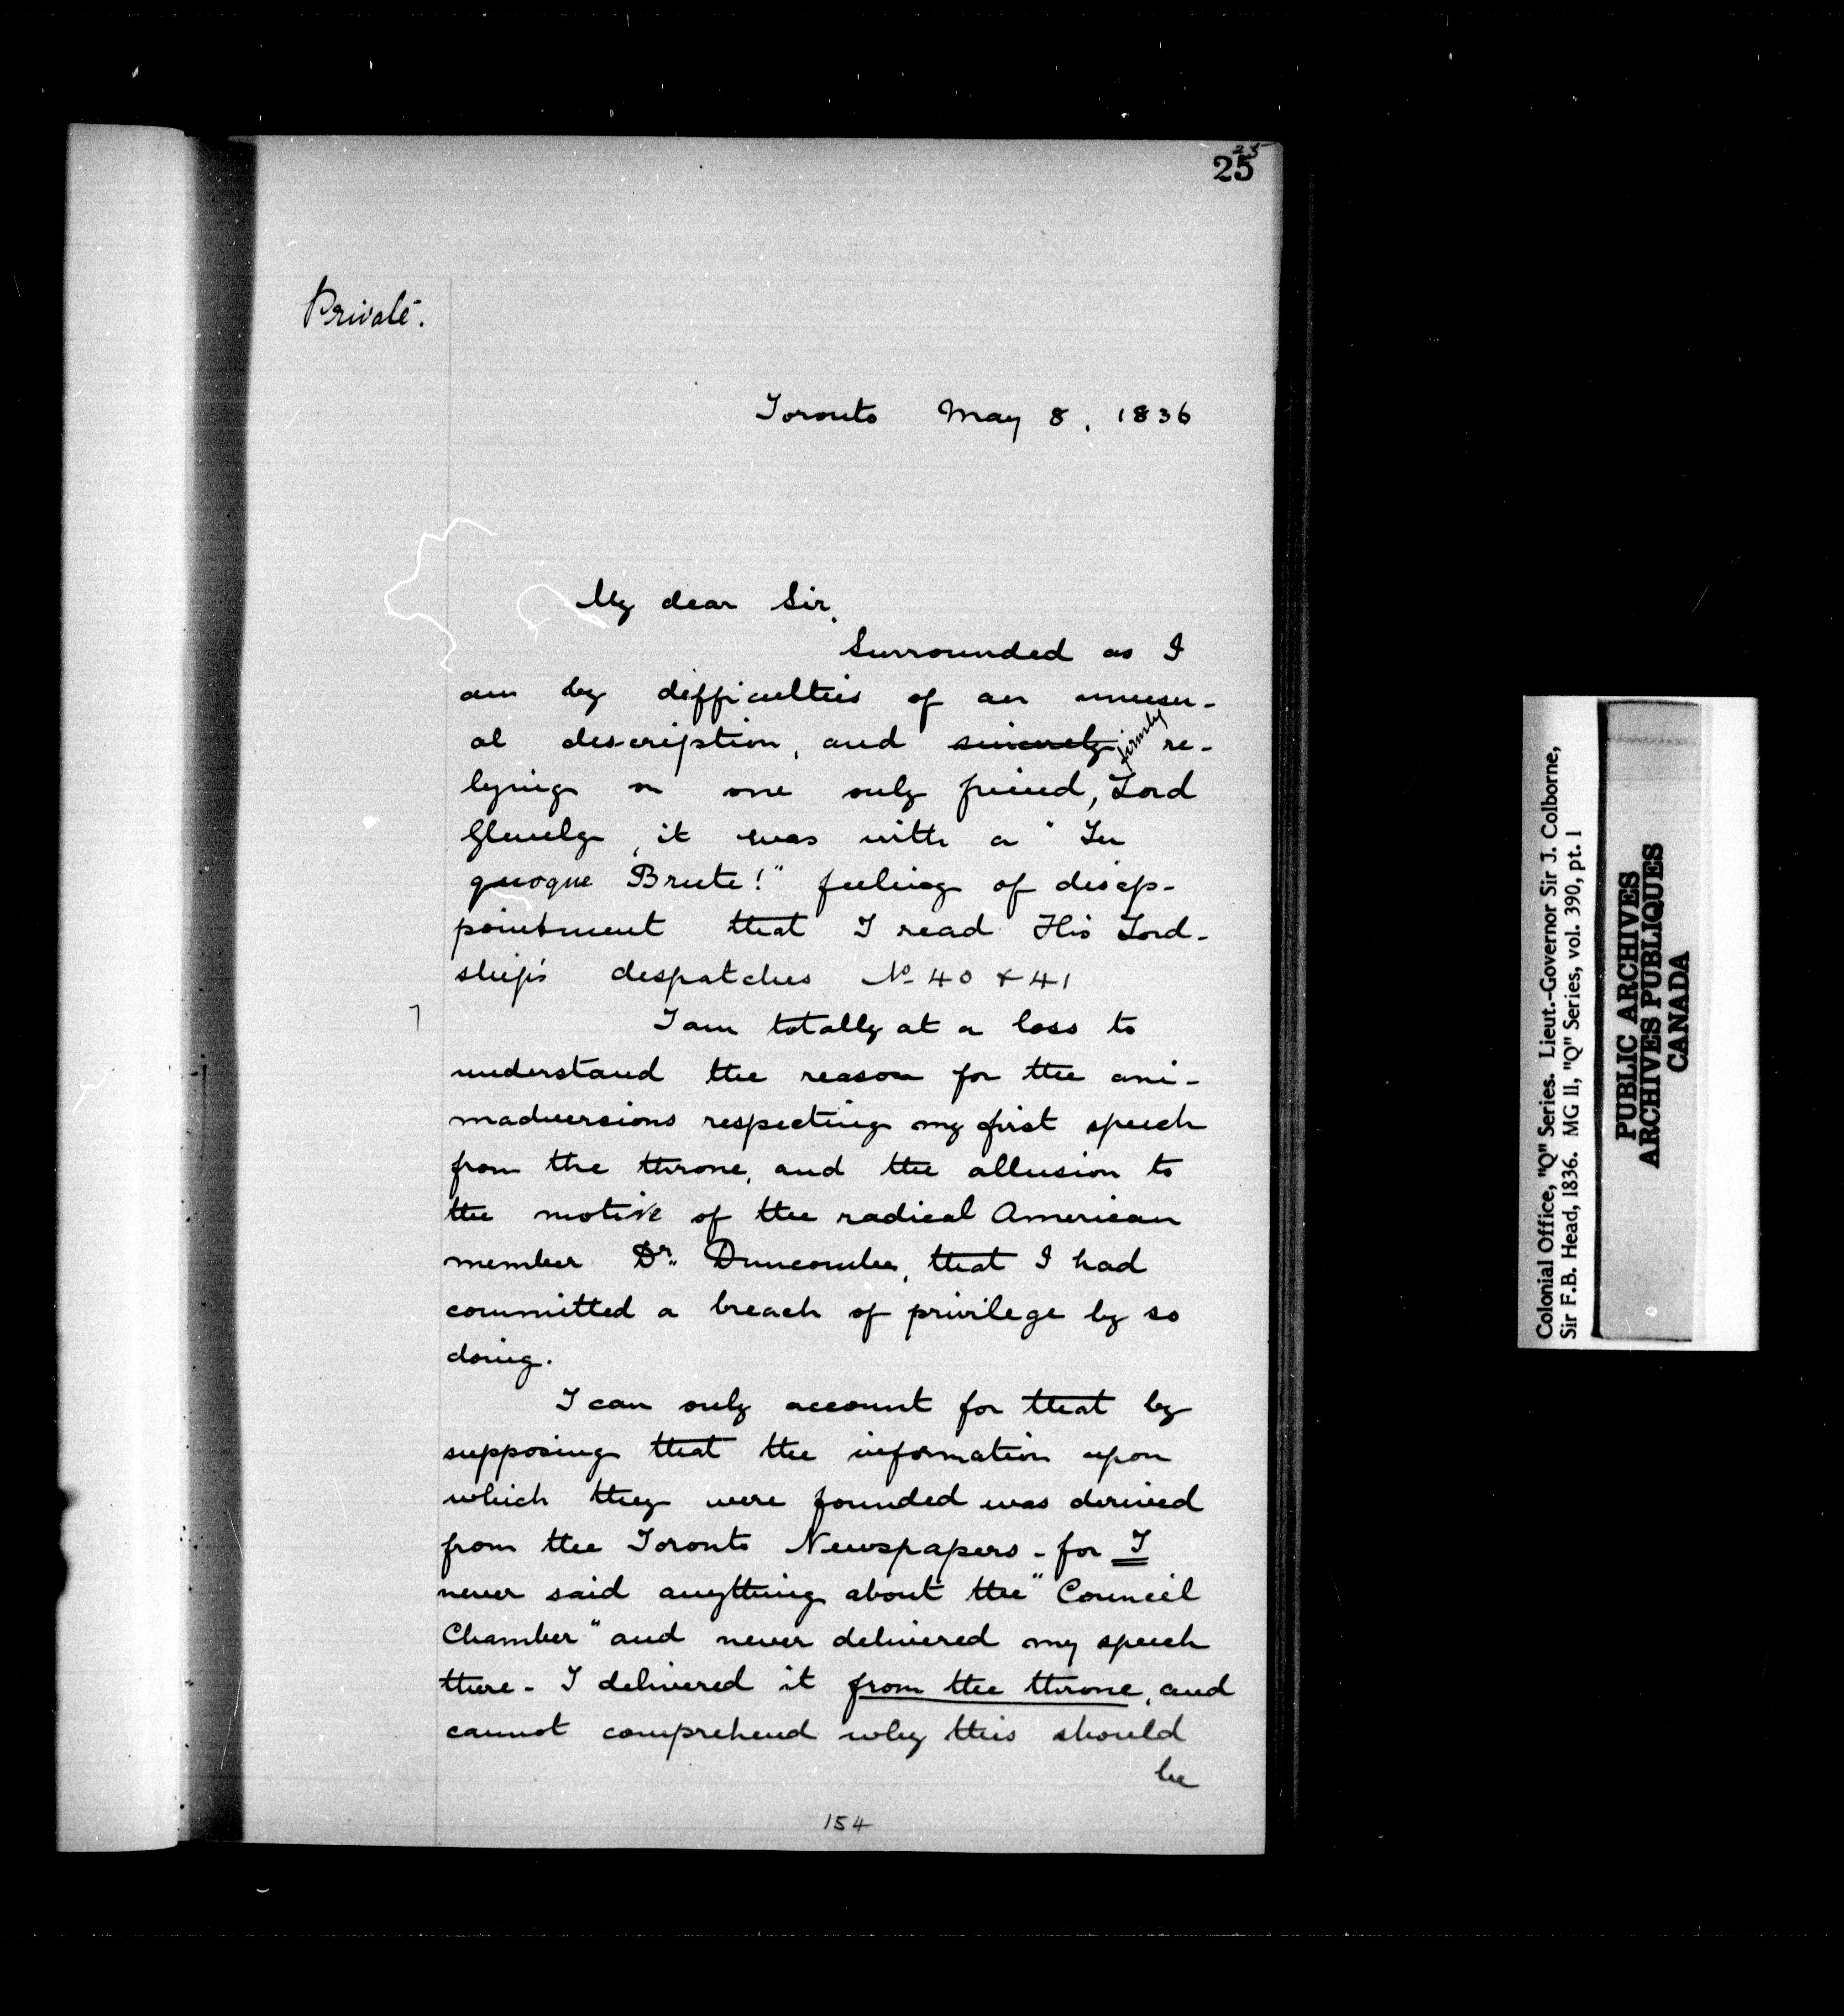 25
25
Private.
Toronto May 8, 1836
My dear Sir,
Surrounded as I
am by difficulties of an unusu-
al description, and sincerely firmly re-
lying on one only friend, Lord
Glenelg, it was with a "Tu
quoque Brute!" feeling of disap-
pointment that I read His Lord-
ship's despatches No 40 & 41
I am totally at a loss to
understand the reason for the ani-
madversions respecting my first speech
from the throne, and the allusion to
the motive of the radical American
member Dr. Duncombe, that I had
committed a breach of privilege by so
doing.
I can only account for that by
supposing that the information upon
which they were founded was derived
from the Toronto Newspapers - for I
never said anything about the "Council
Chamber" and never delivered my speech
there - I delivered it from the throne, and
cannot comprehend why this should
be
154
Colonial Office, "Q" Series. Lieut.-Governor Sir J. Colborne,
Sir F.B. Head, 1836. MG 11, "Q" Series, vol. 390, pt. 1
PUBLIC ARCHIVES
ARCHIVES PUBLIQUES
CANADA